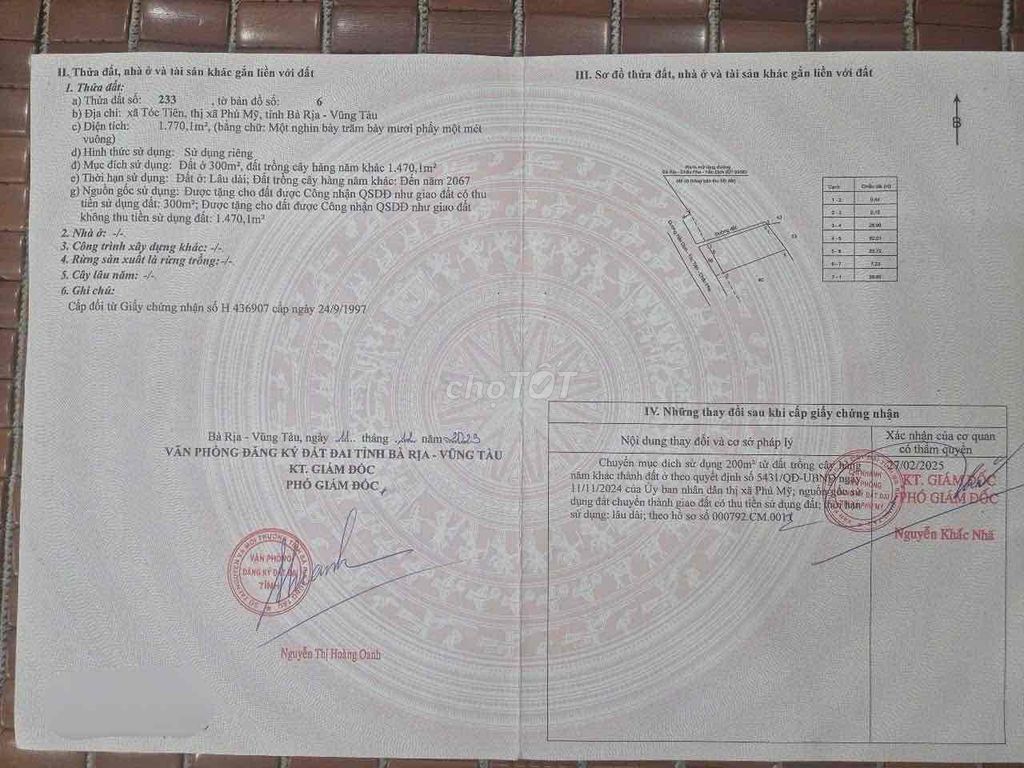 II. Thửa đất, nhà ở và tài sản khác gắn liền với đất
1. Thửa đất:
a) Thửa đất số: 233 , tờ bản đồ số: 6
b) Địa chỉ: xã Tóc Tiên, thị xã Phú Mỹ, tỉnh Bà Rịa - Vũng Tàu
c) Diện tích: 1.770,1m², (bằng chữ: Một nghìn bảy trăm bảy mươi phẩy một mét
vuông)
d) Hình thức sử dụng: Sử dụng riêng
đ) Mục đích sử dụng: Đất ở 300m², đất trồng cây hàng năm khác 1.470,1m²
e) Thời hạn sử dụng: Đất ở: Lâu dài; Đất trồng cây hàng năm khác: Đến năm 2067
g) Nguồn gốc sử dụng: Được tặng cho đất được Công nhận QSDĐ như giao đất có thu
tiền sử dụng đất: 300m²; Được tặng cho đất được Công nhận QSDĐ như giao đất
không thu tiền sử dụng đất: 1.470,1m²
2. Nhà ở: -/-
3. Công trình xây dựng khác: -/-
4. Rừng sản xuất là rừng trồng:-/-
5. Cây lâu năm: -/-
6. Ghi chú:
Cấp đổi từ Giấy chứng nhận số H 436907 cấp ngày 24/9/1997
Bà Rịa - Vũng Tàu, ngày 11 tháng 12 năm 2023
VĂN PHÒNG ĐĂNG KÝ ĐẤT ĐAI TỈNH BÀ RỊA - VŨNG TÀU
KT. GIÁM ĐỐC
PHÓ GIÁM ĐỐC
VĂN PHÒNG
ĐĂNG KÝ ĐẤT ĐAI
TỈNH
Nguyễn Thị Hoàng Oanh
III. Sơ đồ thửa đất, nhà ở và tài sản khác gắn liền với đất
B
Đường đất
Cạnh Chiều dài (m)
1 - 2
2 - 3
3 - 4
4 - 5
5 - 6
6 - 7
7 - 1
chợTỐT
IV. Những thay đổi sau khi cấp giấy chứng nhận
Nội dung thay đổi và cơ sở pháp lý
Xác nhận của cơ quan
có thẩm quyền
Chuyển mục đích sử dụng 200m² từ đất trồng cây hàng
năm khác thành đất ở theo quyết định số 5431/QĐ-UBND ngày
11/11/2024 của Ủy ban nhân dân thị xã Phú Mỹ; nguồn gốc sử
dụng đất chuyển thành giao đất có thu tiền sử dụng đất; thời hạn
sử dụng: lâu dài; theo hồ sơ số 000792.CM.0011
27/02/2025
KT. GIÁM ĐỐC
PHÓ GIÁM ĐỐC
Nguyễn Khắc Nhã